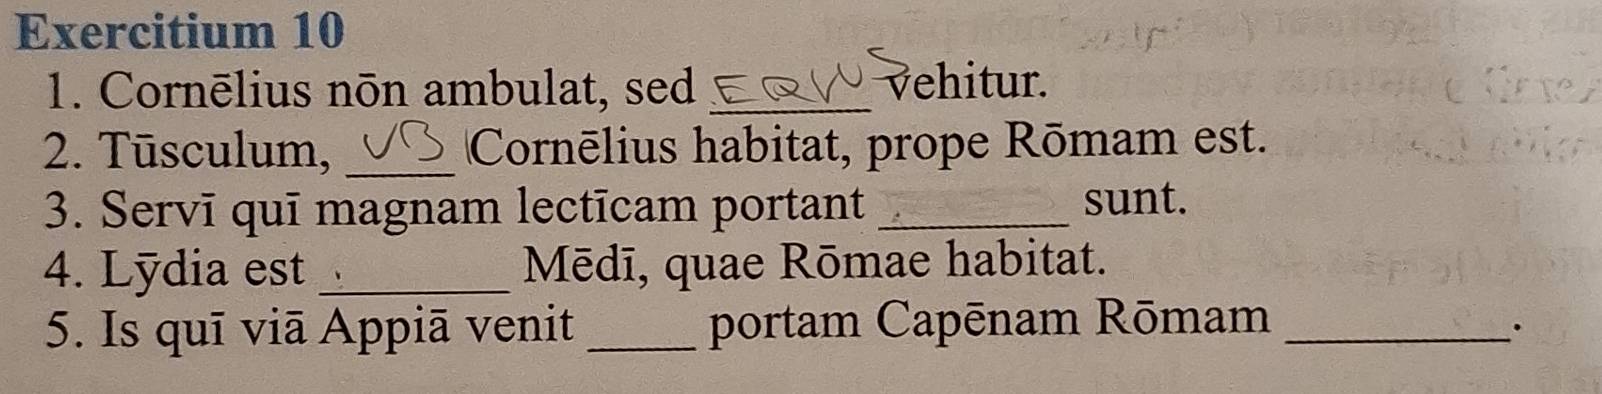 Exercitium 10
1. Cornēlius nōn ambulat, sed EQVŌ vehitur.
2. Tūsculum, VB I Cornēlius habitat, prope Rōmam est.
3. Servī quī magnam lectīcam portant ________ sunt.
4. Lȳdia est ________ Mēdī, quae Rōmae habitat.
5. Is quī viā Appiā venit _____ portam Capēnam Rōmam _________.